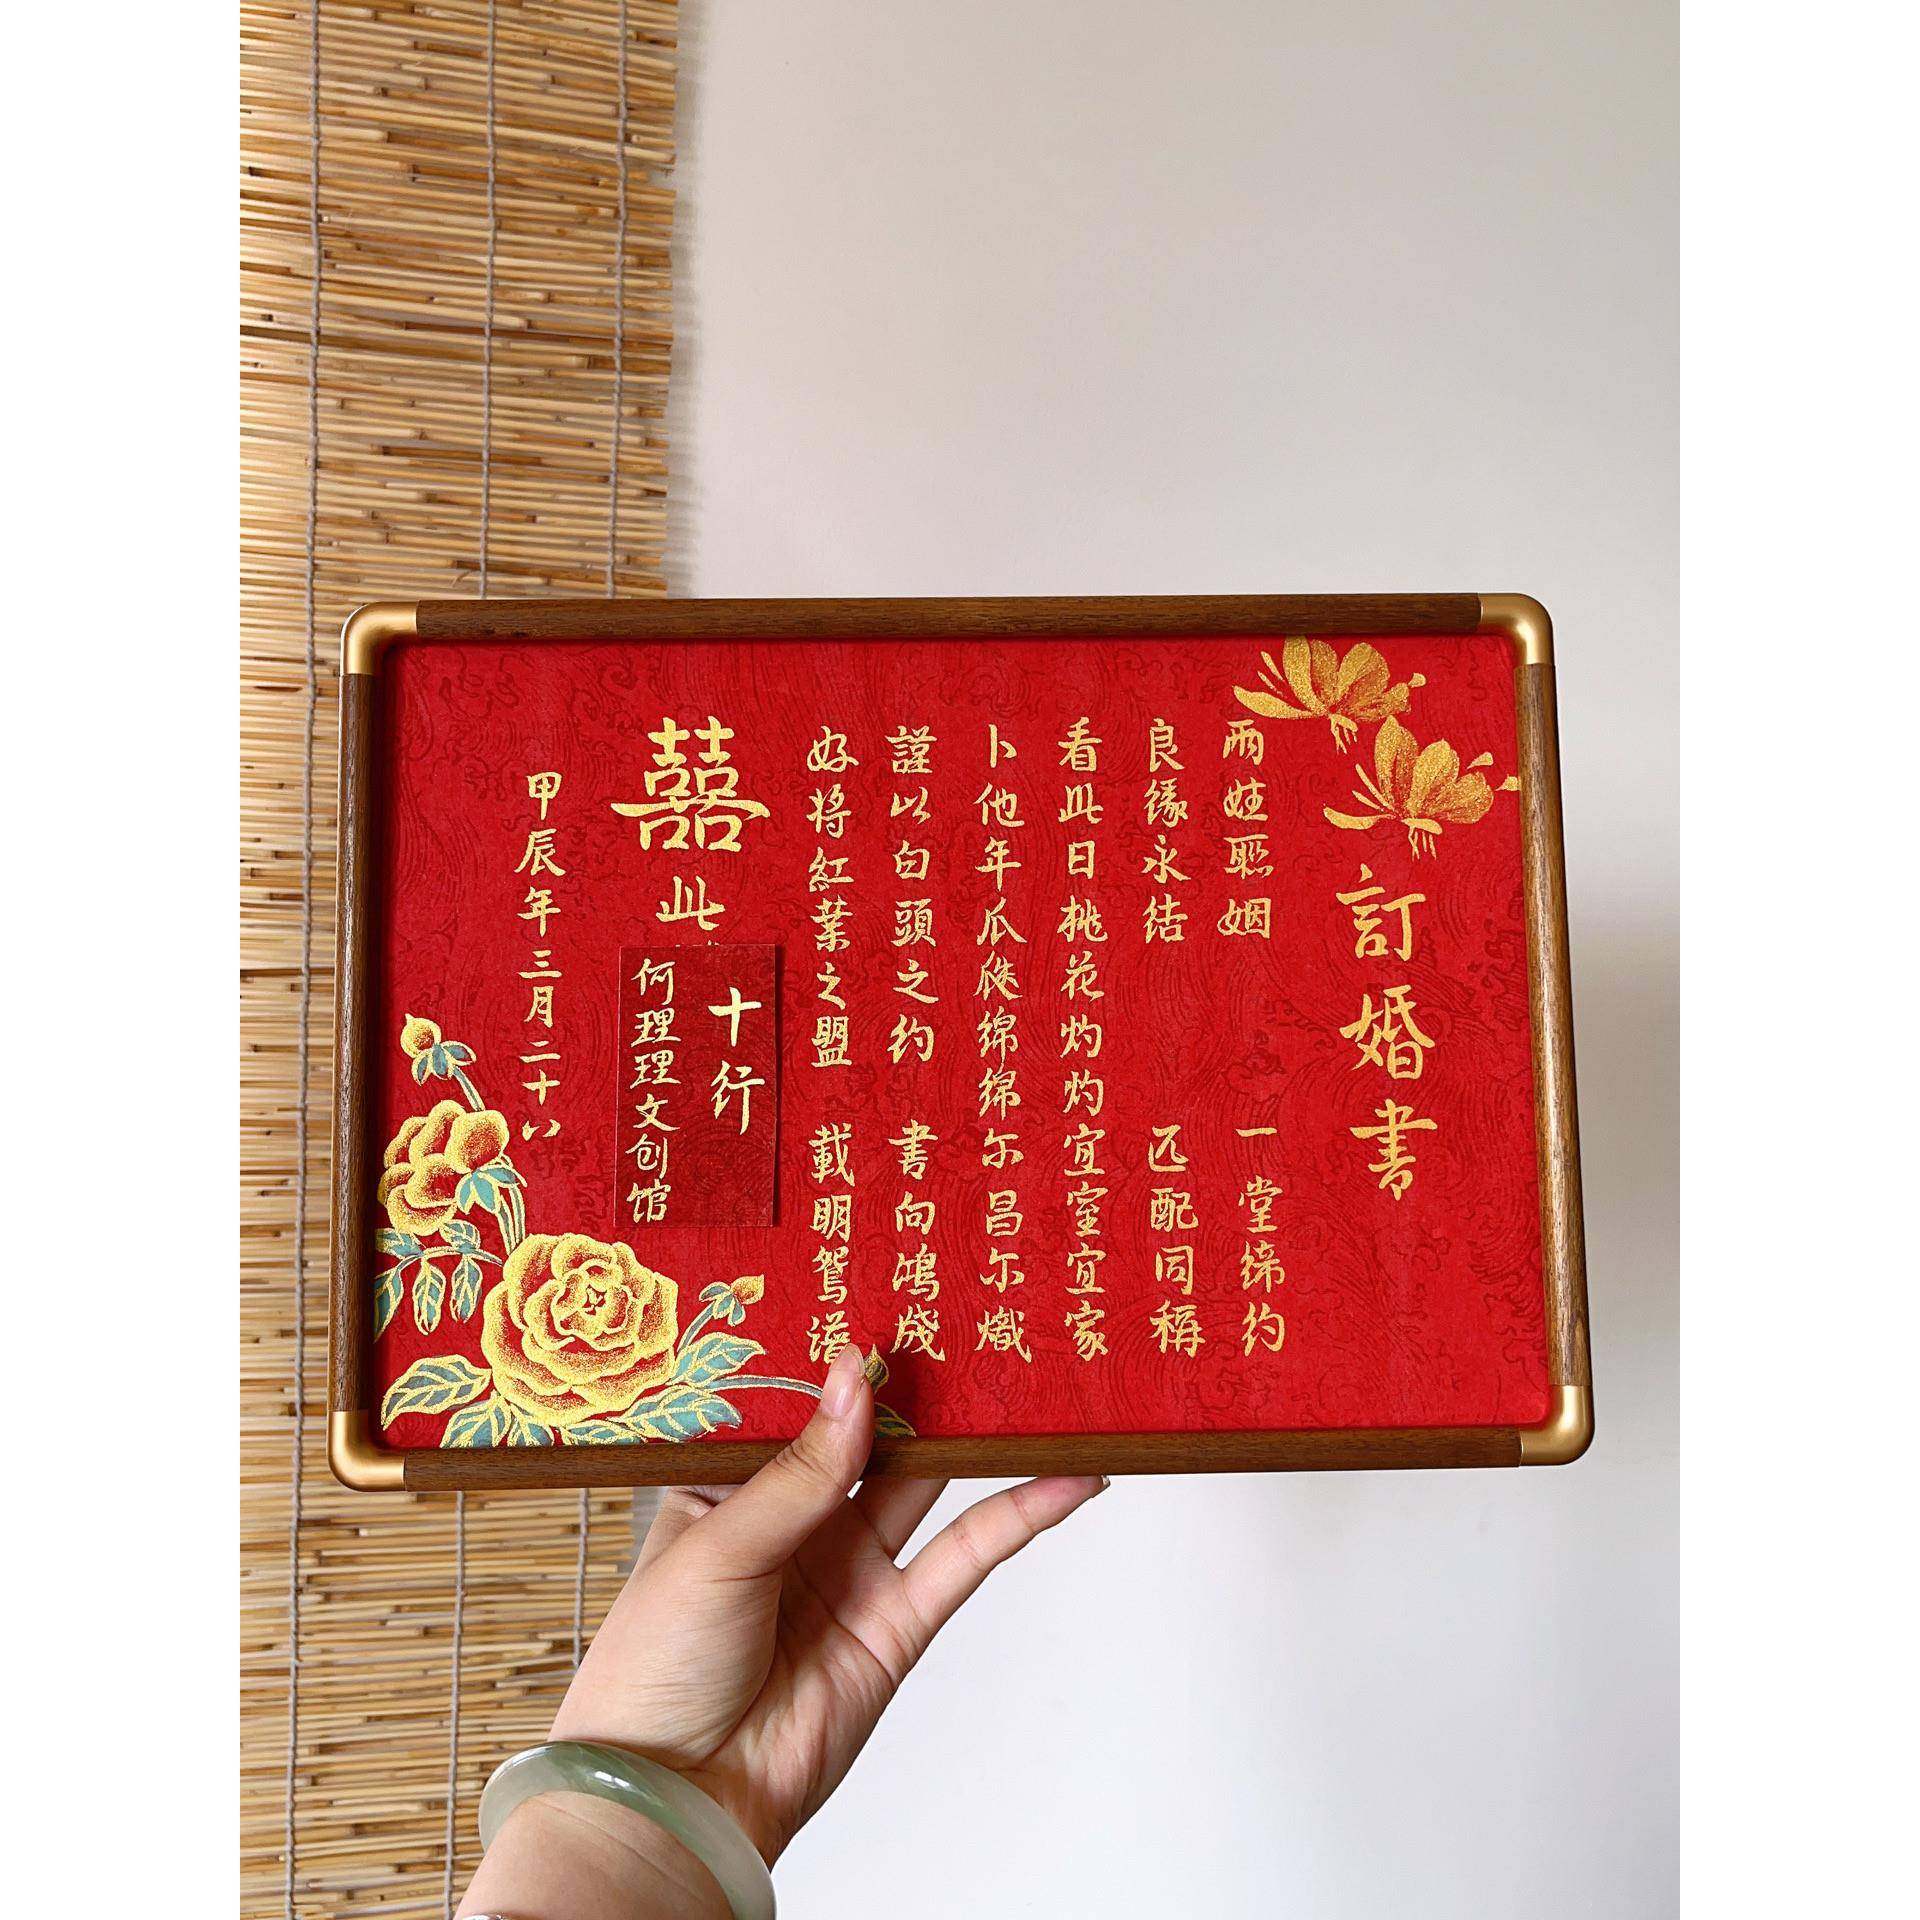 訂婚書
兩姓联姻 一堂缔约
良缘永结 匹配同稱
看此日桃花灼灼宜室宜家
卜他年瓜瓞绵绵尓昌尓熾
謹以白頭之约 書向鴻牋
好将紅葉之盟 載明鴛谱
囍 此
十行
何理理文创馆
甲辰年三月二十八